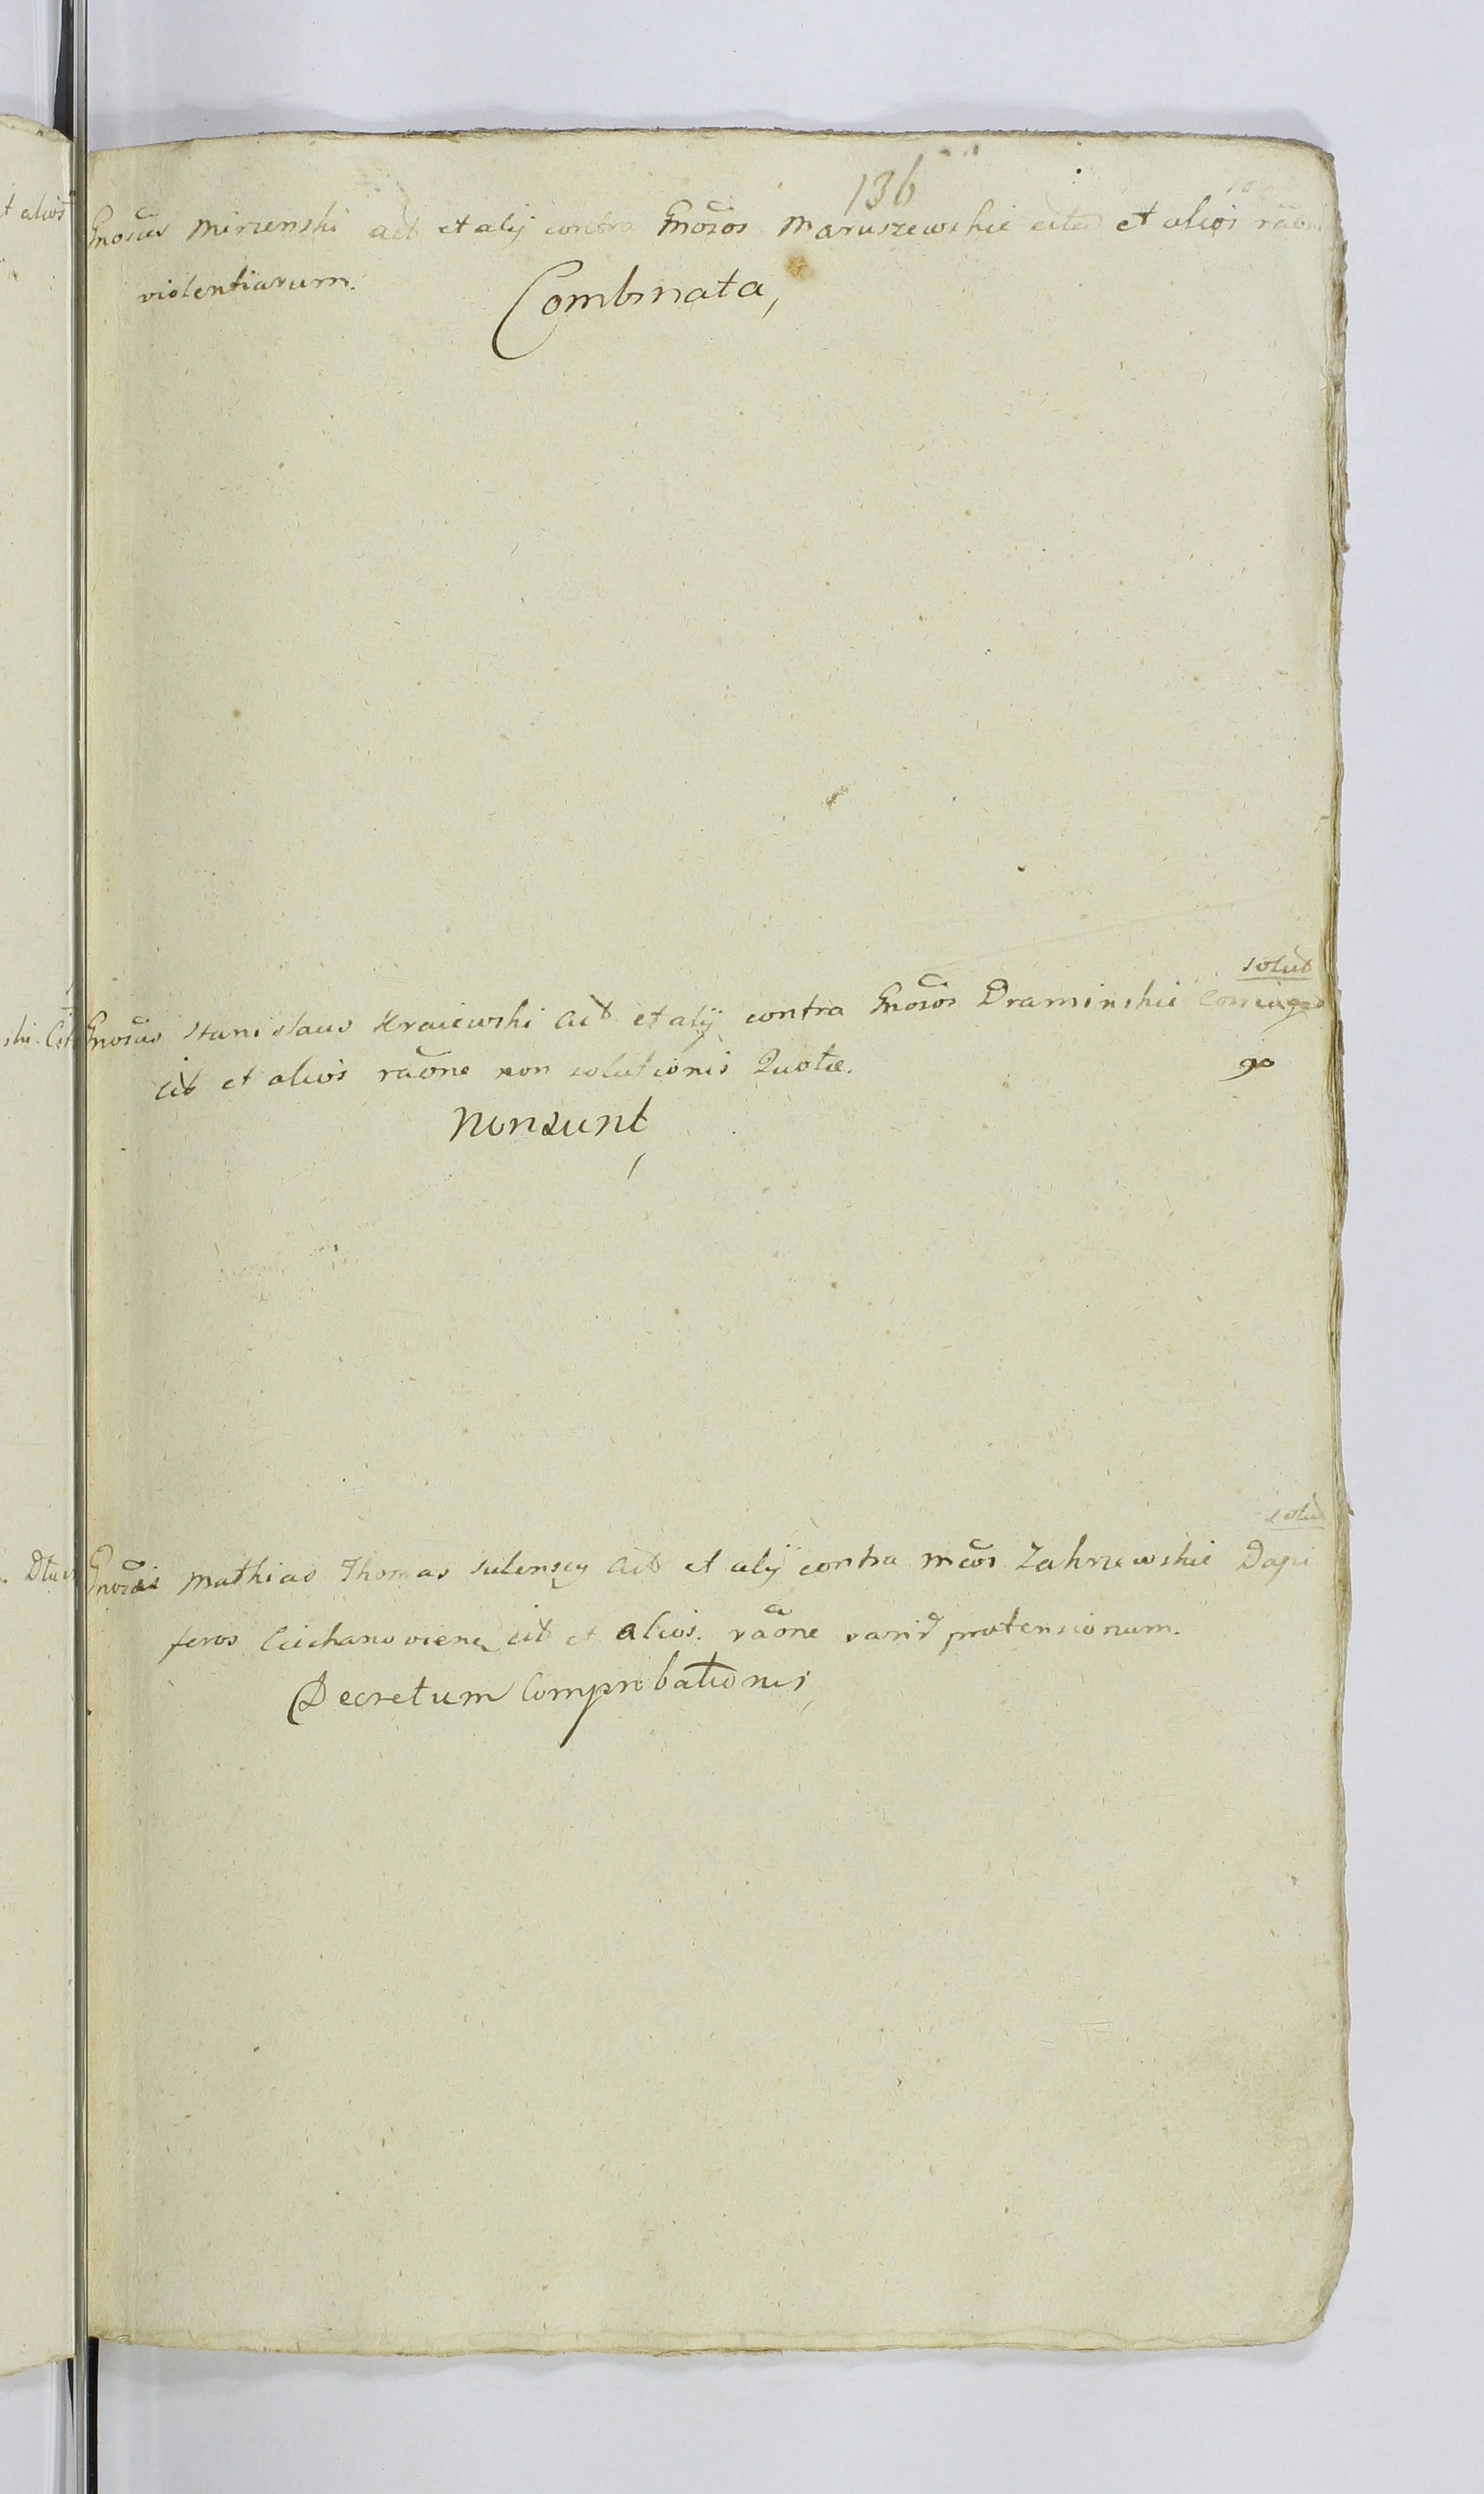 136
Gnosus Mirzenski act et alij contra Gnosos Maruszewskie cita et alios raõn
violentiarum.
Combinata,
solut
Gnosus Stanislaus Kraiewski Act et alij contra Gnosos Draminskie Coniuges
cit et alios raõne non solutionis Quotæ.
Nonsunt,
solut
Gnosi Mathias Thomas Sulenscy Act et alij contra Mcos Zakrzewskie Dapi
feros Ciechanoviens cit et alios. raõne varid prætensionum.
Decretum Comprobationis,